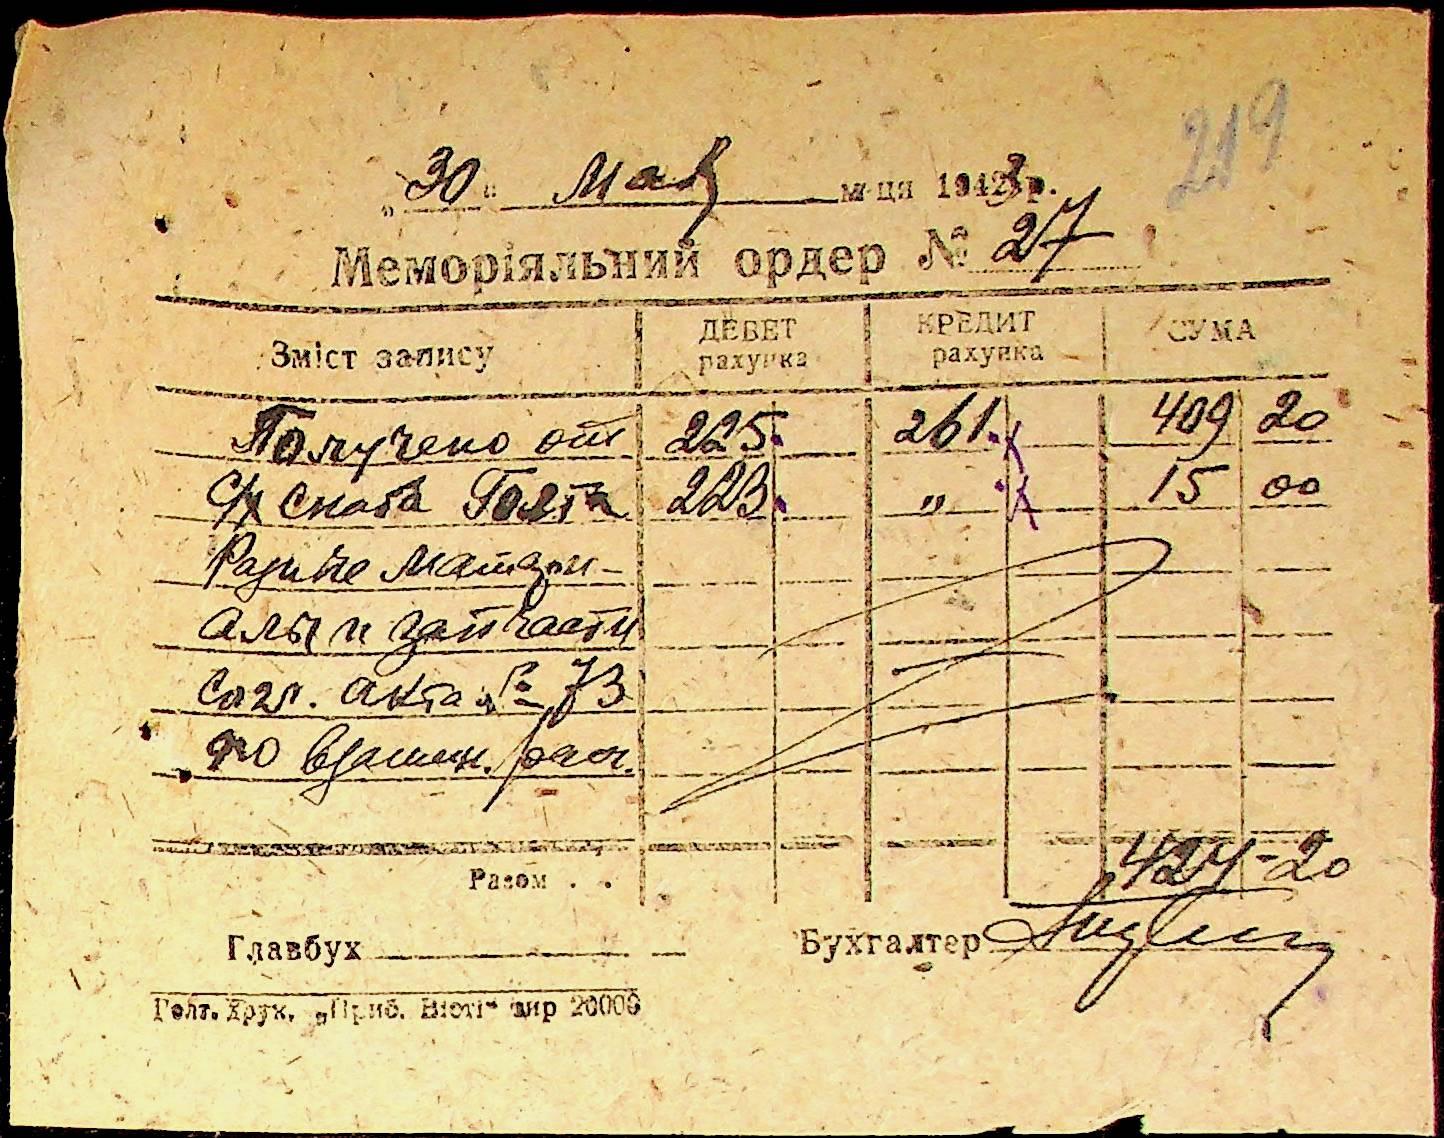 219
„30" Мая м-ця 1943 р.
Меморіяльний ордер № 27
Зміст запису ДЕБЕТ рахунка КРЕДИТ рахунка СУМА
Получено от 225. 261. 409 20
с/х снаба Голта 223. „ 15 00
Разные матери-
алы и запчасти
согл. акта № 73
по взаимн. расч.
Разом . . 424-20
Главбух Бухгалтер
Голт. Друк. „Приб. Вісті" тир 20000